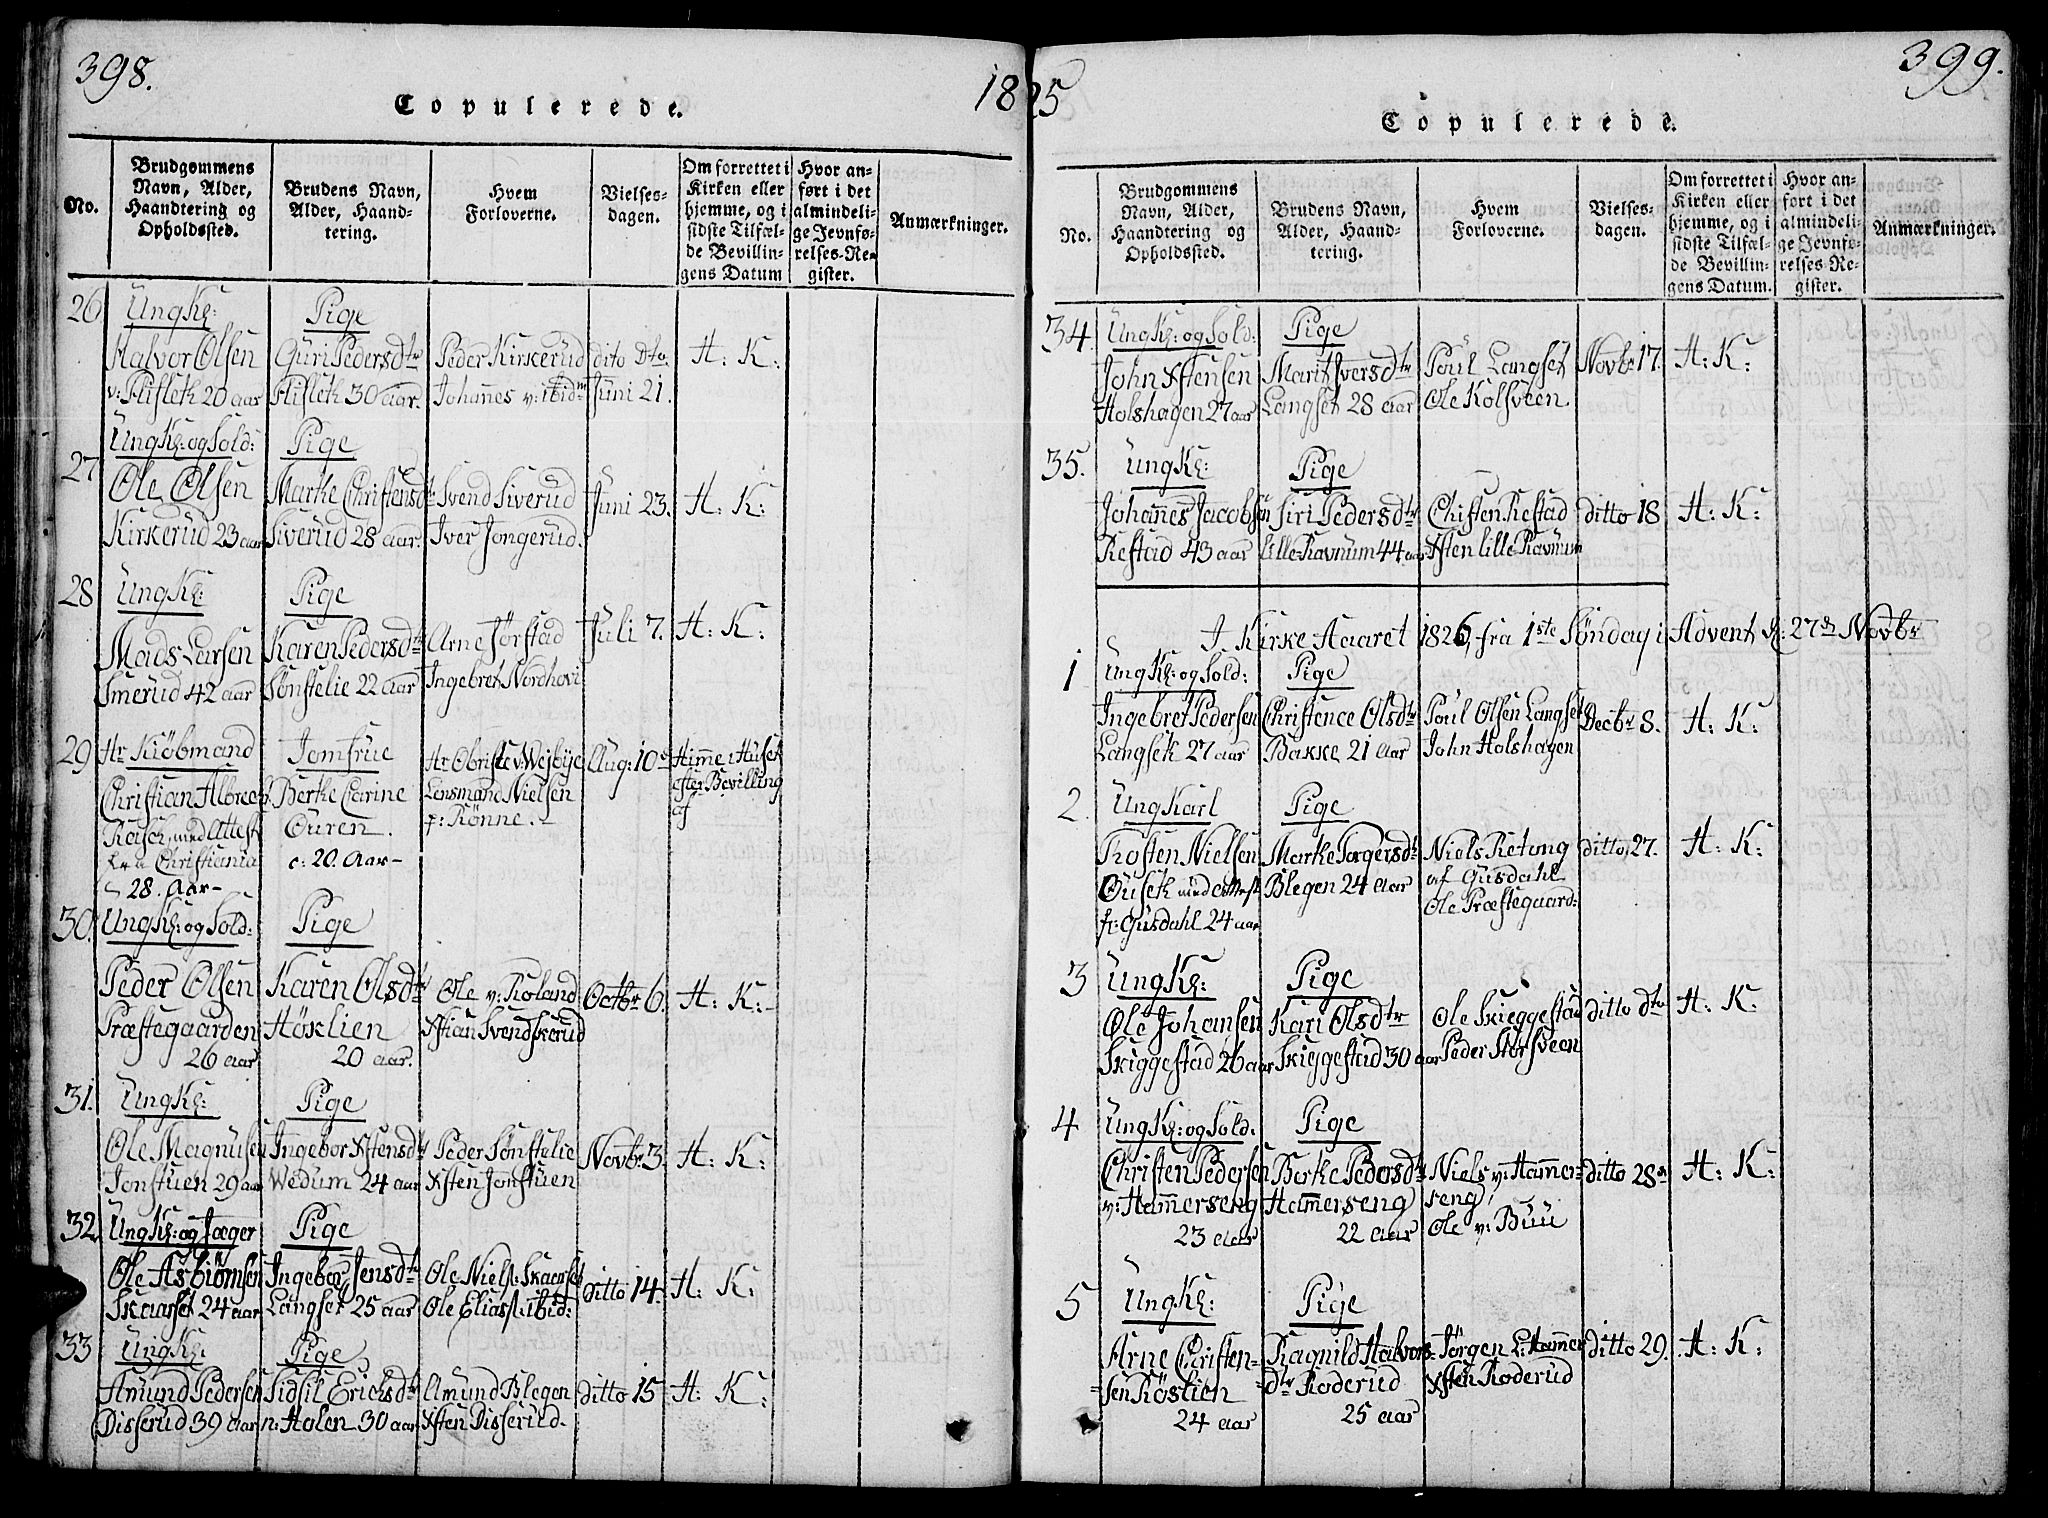 398.
1825
Copulerede.
No.
Brudgommens Navn, Alder, Haandtering og Opholdssted.
Brudens Navn, Alder, Haandtering.
Hvem Forloverne.
Vielsesdagen.
Om forrettet i Kirken eller hjemme, og i sidste Tilfælde Bevillingens Datum
Hvor anført i det almindelige Jevnførelses-Register.
Anmærkninger.
26
UngK:
Pige
Halvor Olsen
Guri Pedersdtr
Peder Kirkerud
dito Dto
H: K:
v: Flisleth 20 aar
Flisleth 30 aar.
Johañes v: ibidm
Juni 21.
27
UngK: og Sold:
Pige
Ole Olsen
Marthe Christensdtr
Svend Siverud
Juni 23.
H: K:
Kirkerud 23 aar
Siverud 28 aar.
Iver Jongerud.
28
UngK:
Pige
Mads Larsen
Karen Pedersdtr
Arne Jørstad
Juli 7.
H: K:
Smerud 42 aar
Sønstelie 22 aar
Ingebret Nordhovi
29
Hr Kiøbmand
Jomfrue
Hr Obriste v: Wejbye
Aug: 10de
Himme i Huset
Christian Albrech
Berthe Carine
Lensmand Nielsen
efter Bevilling
Rasch, med Attest
Ouren.
f: Rönne.
af
fra Christiania
c: 20. Aar-
28. Aar-
30.
UngK: og Sold:
Pige
Peder Olsen
Karen Olsdtr
Ole v: Roland
Octbr 6.
H: K:
Præstegaarden
Høslien
Xstian Svendskerud
26 aar
20 aar.
31.
UngK:
Pige
Ole Magnusen
Ingebor Xstensdtr
Peder Sønstelie
Novbr 3.
H: K:
Jonstuen 29 aar
Wedum 24 aar
Xsten Jonstuen
32.
UngK: og Jæger
Pige
Ole Asbiørnsen
Ingebor Jensdtr
Ole Niels: Skaarset
Ditto 14.
H: K:
Skaarset 24 aar
Langset 25 aar
Ole Elias: ibid:
33
UngK:
Pige
Amund Pedersen
Sidsil Erichsdtr
Amund Blegen
ditto 15
H: K:
Disserud 39 aar
n: Holen 30 aar
Xsten Disserud.
399.
Copulerede.
No.
Brudgommens Navn, Alder, Haandtering og Opholdssted.
Brudens Navn, Alder, Haandtering.
Hvem Forloverne.
Vielsesdagen.
Om forrettet i Kirken eller hjemme, og i sidste Tilfælde Bevillingens Datum.
Hvor anført i det almindelige Jevnførelses-Register.
Anmærkninger.
34.
UngK: og Sold:
Pige
John Xstensen
Marit Iversdtr
Poul Langset
Novbr 17.
H: K:
Holshagen 27 aar
Langset 28 aar
Ole Kolsveen
35.
UngK:
Pige
Johañes Jacobsen
Siri Pedersdtr
Christen Restad
ditto 18
H: K:
Restad 43 aar
Lille-Ravnum 44 aar
Xsten lille Ravnum
I Kirke Aaret 1826, fra 1ste Søndag i Advent d: 27de Novbr
1
UngK: og Sold:
Pige
Ingebret Pedersen
Christence Olsdtr
Poul Olsen Langset
Decbr 8.
H: K:
Langseth 27 aar
Bakke 21 aar
John Holshagen
2.
Ung Karl
Pige
Trosten Nielsen
Marthe Torgersdtr
Niels Retung
ditto, 27.
H: K:
Ouseth med Attest
Blegen 24 aar
af Gusdahl
fr: Gusdahl 24 aar
Ole Præstegaard:
3
UngK:
Pige
Ole Johansen
Kari Olsdtr
Ole Skieggestad
ditto dto
H: K:
Skiggestad 26 aar
Skiggestad 30 aar
Peder Storsveen
4
UngK: og Sold.
Pige
Christen Pedersen
Berthe Pedersdtr
Niels v: Ham̃er-
ditto 28de
H: K:
v: Ham̃erseng
Ham̃erseng
seng,
23 aar
22 aar
Ole v: Buu
5
UngK:
Pige
Arne Christen-
Ragnild Halvors-
Jørgen L: Ham̃er
ditto 29.
H: K:
sen Røslien
dtr Roderud
Xsten Roderud
24 aar
25 aar